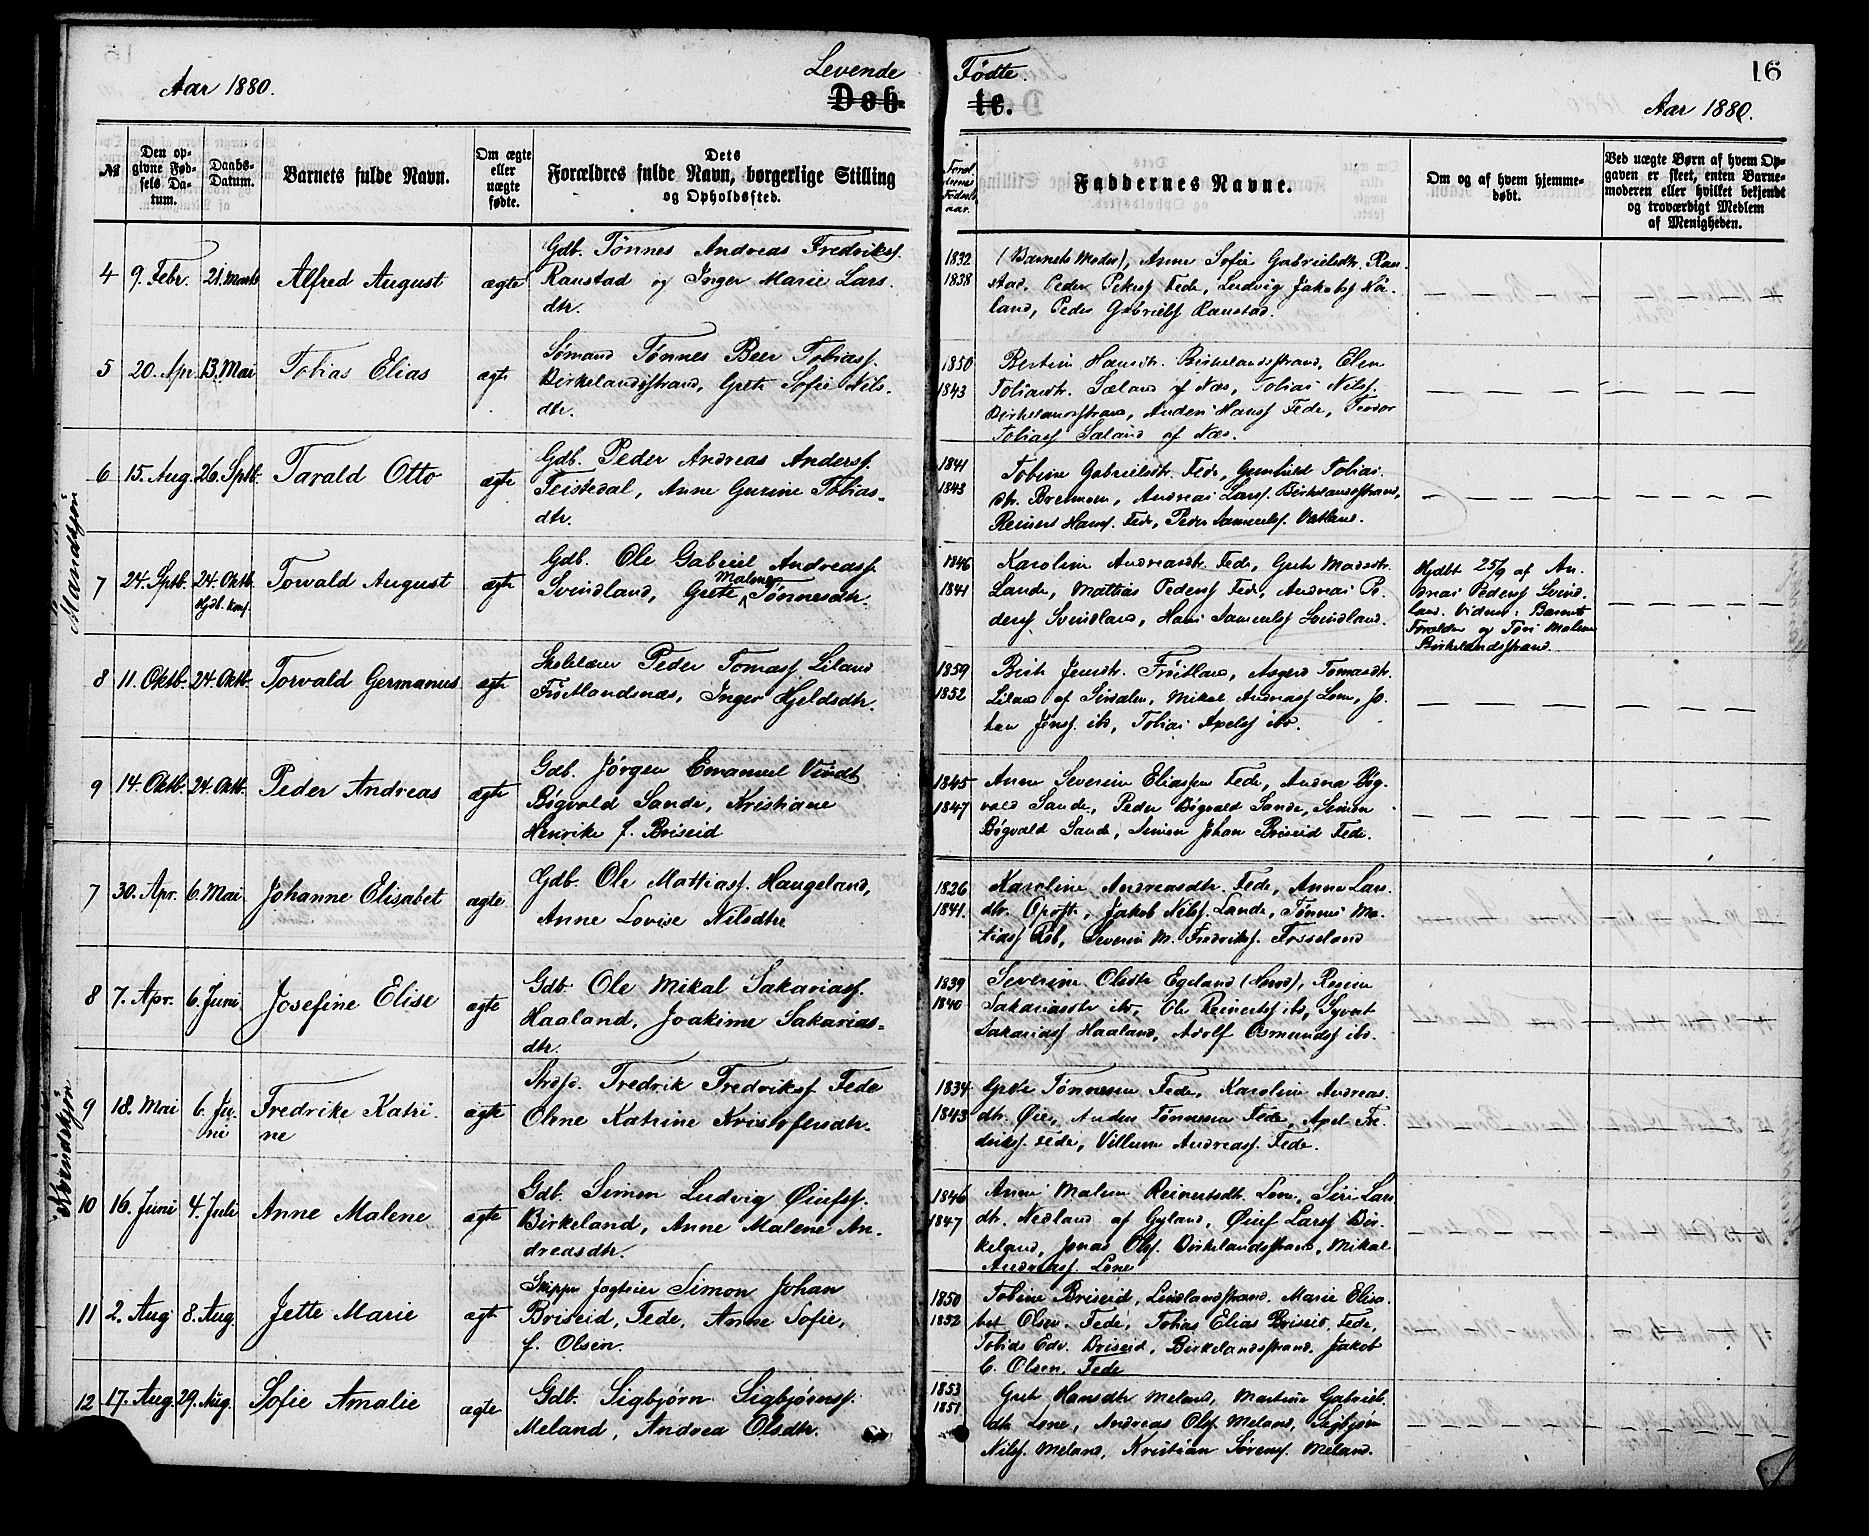 Aar 1880.
Levende
Døb-
Fødte.
te.
16
Aar 1880.
№
Den opgivne Fødsels Datum.
Daabs-Datum.
Barnets fulde Navn.
Om ægte eller uægte fødte.
Dets Forældres fulde Navn, borgerlige Stilling og Opholdssted.
Faddernes Navne.
Om og af hvem hjemmedøbt.
Ved uægte Børn af hvem Opgaven er skeet, enten Barnemoderen eller hvilket bekjendt og troværdigt Medlem af Menigheden.
Mandkjøn
4 9. Febr. 21. Marts Alfred August ægte
Gdb. Tønnes Andreas Fredriksf.
Raustad og Inger Marie Lars-
dtr.
1832
1838
(Barnets Moder), Anne Sofie Gabrielsdtr. Rau-
stad. Peder Peders Fede, Ludvig Jakobsf
land, Peder Gabrielsf Raustad.
5 20. Apr. 13. Mai Tobias Elias ægte
Sømand Tønnes Beer Tobiasf.
Birkelandsstrand, Grete Sofie Nils-
dtr.
1850
1843
Hansdtr. Birkelandsstrand, Elen
Tobiasdtr. Sæland af Næs, Tobias Nilsf.
Birkelandsstrand, Anders Hansf Fede, Teodor
Tobiasf Sæland af Næs.
6 15. Aug. 26. Sptb. Tarald Otto ægte
Gdb. Peder Andreas Andersf.
Feistedal, Anne Gurine Tobias-
dtr.
1841
1843
Tobine Gabrielsdtr. Fede, Gunhild Tobias-
dtr. Bremnen, Andreas Larsf. Birkelandsstrand,
Reinert Hansf. Fede, Peder Samuelsf. Vatland.
7 24. Sptb. 24. Oktb. Hjdb. konf. Torvald August ægte
Gdb. Ole Gabriel Andreasf.
Svindland, Grete Malene Tønnesdtr.
1846
1841
Karoline Andreasdtr. Fede, Grete Madsdtr.
Lande, Mathias Pedersf Fede, Andreas Pe-
dersf Svindland, Hans Samuelsf Svindland.
Hjdbt 25/9 af An-
dreas Pedersf Svind-
land. Vidner: Barnets
Forældre og Tøri Malene
Birkelandsstrand.
8 11. Oktb. 24. Oktb. Torvald Germanius ægte
Skolelærer Peder Tomasf Liland
Frøitlandsnæs, Inger Hjeldsdtr.
1859
1852
Birte Jensdtr. Frøitland, Asgerd Tomasdtr.
Liland af Siredalen, Mikal Andreasf Lone, Jo-
han Jensf. ibd, Tobias Axelsf ibd.
9 14. Oktb. 24. Oktb. Peder Andreas ægte
Gdb. Jørgen Emanuel Vindt
Bøgvald Sande, Kristiane
Henrike f. Briseid
1845
1847
Anne Severin Eliassen Fede, Andrea Bøg-
vald Sande, Peder Bøgvald Sande, Simon
Bøgvald Sande, Simon Johan Briseid Fede.
Kvindekjøn
7 30. Apr. 6. Mai Johanne Elisabet ægte
Gdb. Ole Mathiasf. Haugeland,
Anne Lovise Nilsdtr.
1826
1841.
Karoline Andreasdtr. Fede, Anne Lars-
dtr. Opofte, Jakob Nilsf. Lande, Tønnes Ma-
tiasf Røb, Severin M. Fredriksf. Fosseland
8 7. Apr. 6. Juni Josefine Elise ægte
Gdb. Ole Mikal Sakariasf.
Haaland, Joakime Sakarias-
dtr.
1839
1840
Severine Olsdtr Egeland Regine
Sakariasdtr ibd, Ole Reinertsf ibd, Syvert
Sakariasf Haaland, Adolf Osmundsf ibd.
9 18. Mai 6. Ju-
ni Fredrike Katri-
ne ægte
Strdsd. Fredrik Fredriksf Fede
Oline Katrine Kristofersdtr.
1834
1843
Grete Tønnesen Fede, Karoline Andreas-
dtr. Øie, Anders Tønnesen Fede, Axel Fre-
driksf. Fede, Villum Andreasf. Fede.
10 16. Juni 4. Juli Anne Malene ægte
Gdb. Simon Ludvig Øiufsf.
Birkeland, Anne Malene An-
dreasdtr.
1846
1847
Anne Malene Reinertsdtr. Lone, Siri Lars-
dtr. Nedland af Gyland, Øiuf Larsf Bir-
keland, Jonas Olsf. Birkelandsstrand, Mikal
Andreasf. Lone
11 2. Aug 8. Aug. Jette Marie ægte
Skipper Jagteier Simon Johan
Briseid, Fede, Anne Sofie,
f. Olsen.
1850
1852
Tobine Briseid, Lindlandsstrand. Marie Elisa-
bet Olsen Fede, Tobias Elias Briseid, Fede,
Tobias Edv. Briseid, Birkelandsstrand, Jakob
C. Olsen, Fede
12 17. Aug. 29. Aug. Sofie Amalie ægte
Gdb. Sigbjørn Sigbjørnsf.
Meland, Andrea Olsdtr.
1853
1851
Grete Hansdtr Meland, Martine Gabriels-
dtr Lone, Andreas Olsf Meland, Sigbjørn
Nilsf. Meland, Kristian Sørensf. Meland.